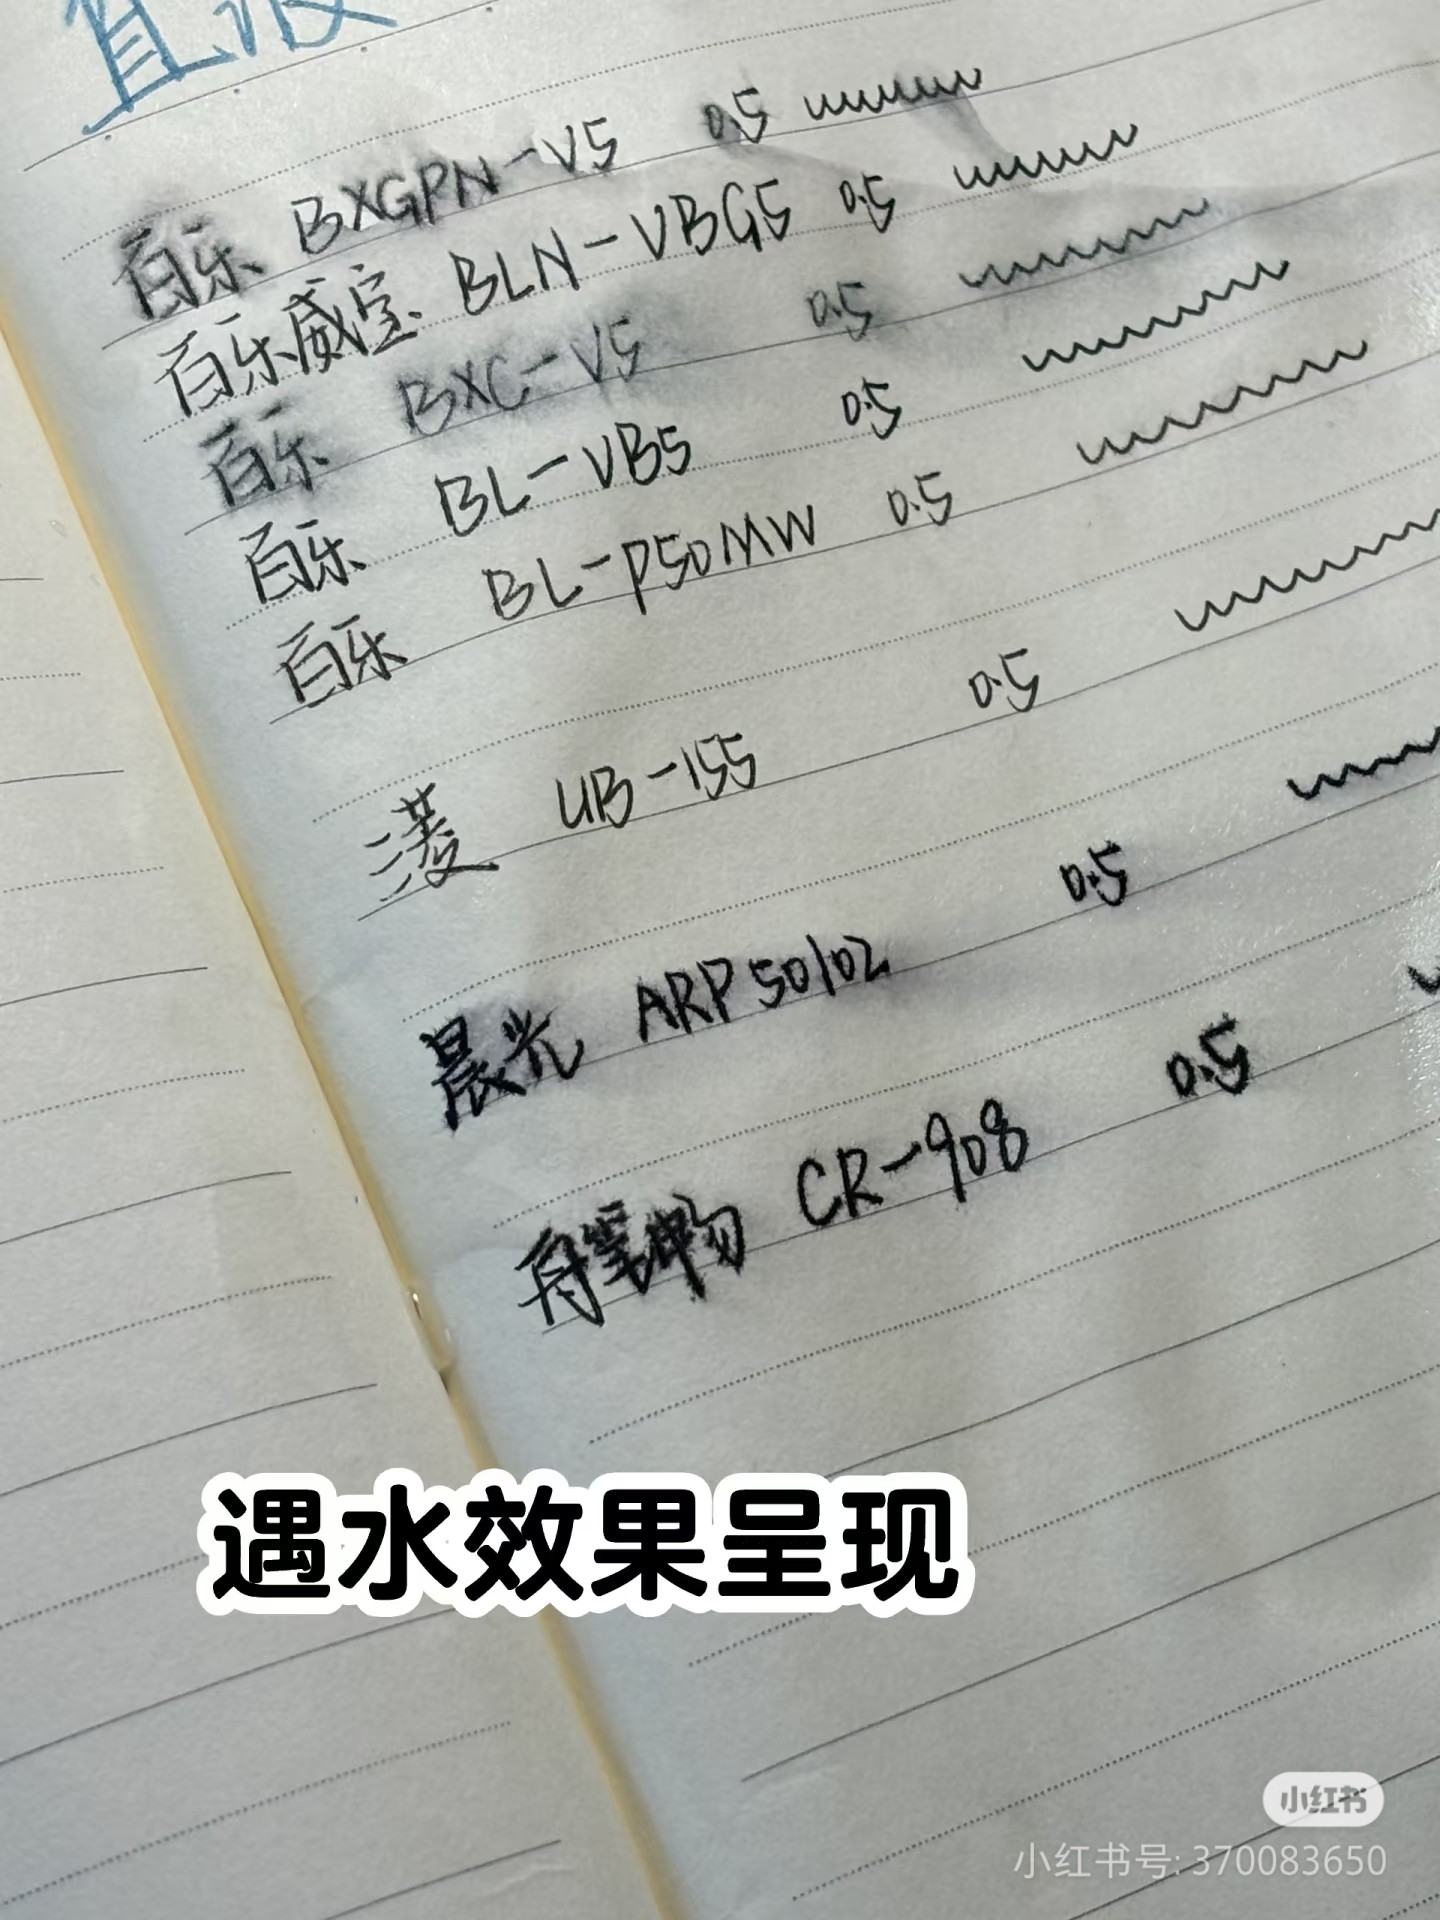 直液
百乐 BXGPN-V5 0.5
百乐威宝 BLN-VBG5 0.5
百乐 BXC-V5 0.5
百乐 BL-VB5 0.5
百乐 BL-P50MW 0.5
三菱 UB-155 0.5
晨光 ARP50102 0.5
CR-908 0.5
遇水效果呈现
小红书
小红书号: 370083650